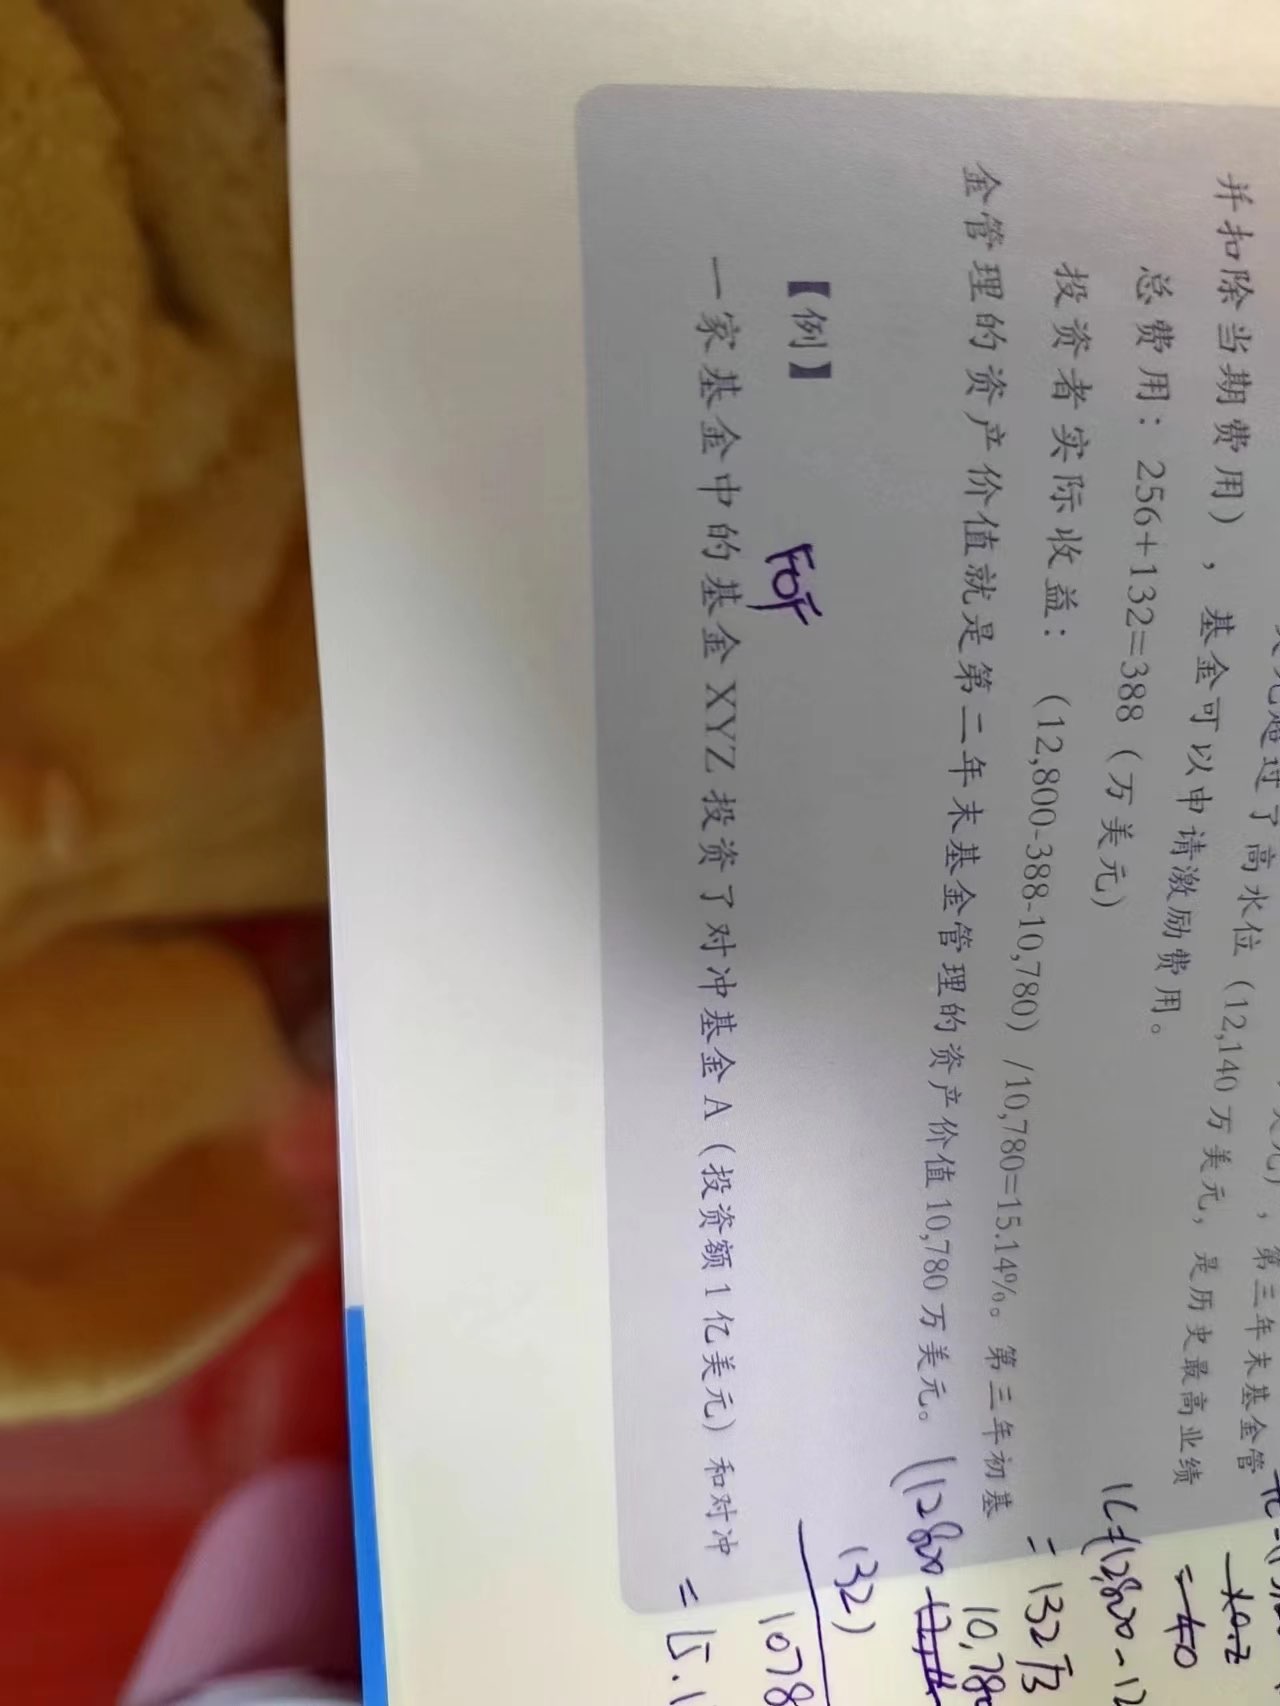 美元超过了高水位(12,140万美元,是历史最高业绩
并扣除当期费用),基金可以申请激励费用。
总费用:256+132=388(万美元)
投资者实际收益:(12,800-388-10,780)/10,780=15.14%。第三年初基
金管理的资产价值就是第二年末基金管理的资产价值10,780万美元。
【例】
FOF
一家基金中的基金XYZ投资了对冲基金A(投资额1亿美元)和对冲
=132万
10,780
(12800-
132)
1078
=15.1